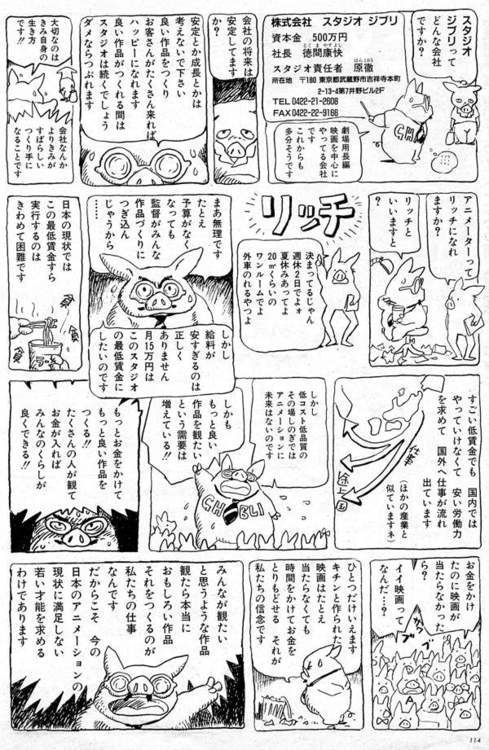 スタジオ
ジブリって
どんな会社
ですか?
株式会社 スタジオ ジブリ
資本金 500万円
社長 徳間康快
スタジオ責任者 原徹
所在地 〒180 東京都武蔵野市吉祥寺本町
2-13-4第7井野ビル2F
TEL 0422-21-2608
FAX 0422-22-9166
劇場用長編
映画を中心に
やってる会社
です
これからも
多分そうです
GH
会社の将来は
安定してます
か?
安定とか成長とかは
考えないで下さい
良い作品をつくり
お客さんがたくさん来れば
ハッピーになれます
良い作品がつくれる間は
スタジオは続くでしょう
ダメならつぶれます
大切なのは
きみ自身の
生き方
です!!
会社なんか
よりきみが
すばらしい
つくり手に
なることです
アニメーターって
リッチになれ
ますか?
リッチと
いいますと
?
リッチ
決まってるじゃん
週休2日でよォ
夏休みあってよ
20㎡くらいの
ワンルームでよ
外車のれるやつよ
まあ無理です
たとえ
予算がなく
なっても
監督がみんな
作品づくりに
つぎ込ん
じゃうから
……
しかし
給料が
安すぎるのは
正しく
ありません
月15万円は
このスタジオ
の最低賃金に
したいのです
日本の現状では
この最低賃金すら
実行するのは
きわめて困難です
すごい低賃金でも 国内では
やっていけなくて 安い労働力
を求めて 国外へ仕事が流れ
出ています
(ほかの産業と
似ていますネ)
仕事
途上国
しかも
低コスト低品質の
その場しのぎでは
アニメーションに
未来はないのです
しかも
もっと良い
作品を観たい
という需要は
増えている!!
GHIBLI
もっとお金をかけて
もっと良い作品を
つくる!!
たくさんの人が観て
お金が入れば
みんなのくらしが
良くできる!!
お金をかけ
たのに映画が
当たらなかった
ら?
イイ映画って
なんだ…?
ブー
ひとつだけいえます
キチンと作られた
映画はたとえ
当たらなくても
時間をかけてお金を
とりもどせる それが
私たちの信念です
みんなが観たい
と思うような作品
観たら本当に
おもしろい作品
それをつくるのが
私たちの仕事
なんです
だからこそ 今の
日本のアニメーションの
現状に満足しない
若い才能を求める
わけであります
114